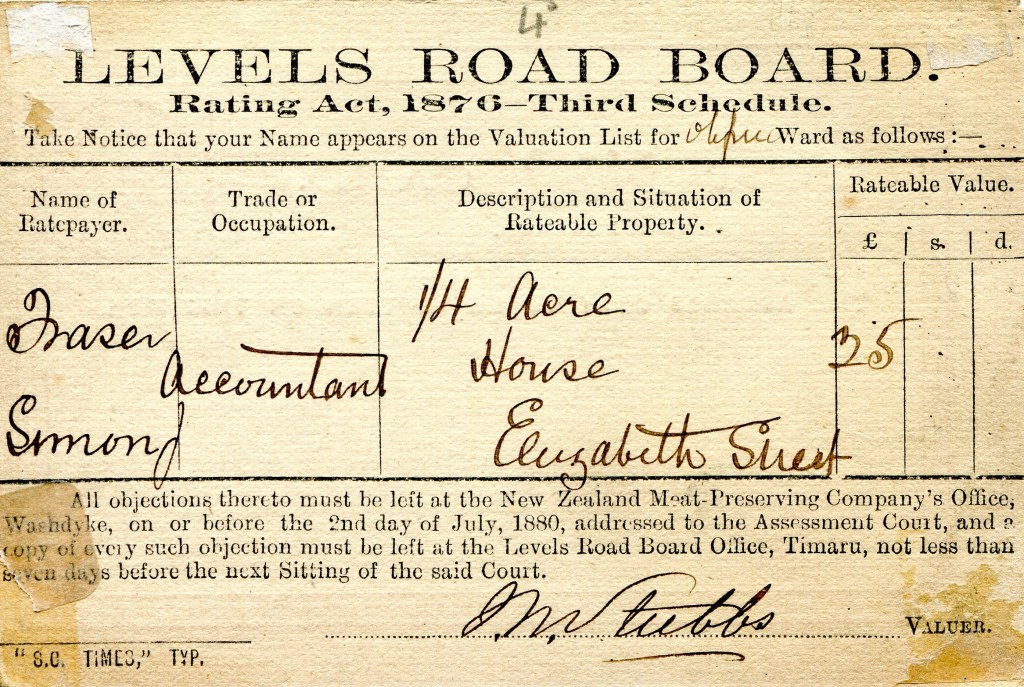 4
LEVELS ROAD BOARD.
Rating Act, 1876—Third Schedule.
Take Notice that your Name appears on the Valuation List for Ward as follows :—
Name of Ratepayer.
Trade or Occupation.
Description and Situation of Rateable Property.
Rateable Value.
£ s. d.
Fraser
Simon
Accountant
1/4 Acre
House
Elizabeth Street
35
All objections thereto must be left at the New Zealand Meat-Preserving Company's Office,
Washdyke, on or before the 2nd day of July, 1880, addressed to the Assessment Court, and a
copy of every such objection must be left at the Levels Road Board Office, Timaru, not less than
seven days before the next Sitting of the said Court.
Stubbs VALUER.
"S.C. TIMES," TYP.